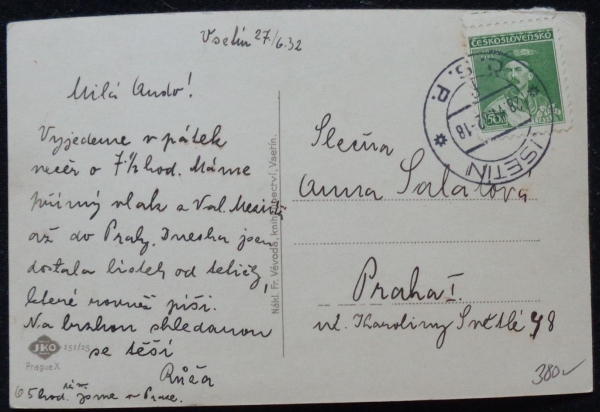 Vsetín 27/6.32
Milá Ando!
Vyjedeme v pátek
večer o 7½ hod. Máme
přímý vlak z Val. Meziříčí
až do Prahy. Dneska jsem
dostala lístek od tetičky,
které rovněž píši.
Na brzkou shledanou
se těší
Růža
o 5 hod. ráno jsme v Praze.
Slečna
Anna Salátová
Praha I.
ul. Karoliny Světlé 48
ČESKOSLOVENSKO
50
VSETÍN
Nákl. Fr. Vévoda, knihkupectví, Vsetín.
JKO
151/25
Prague X
380